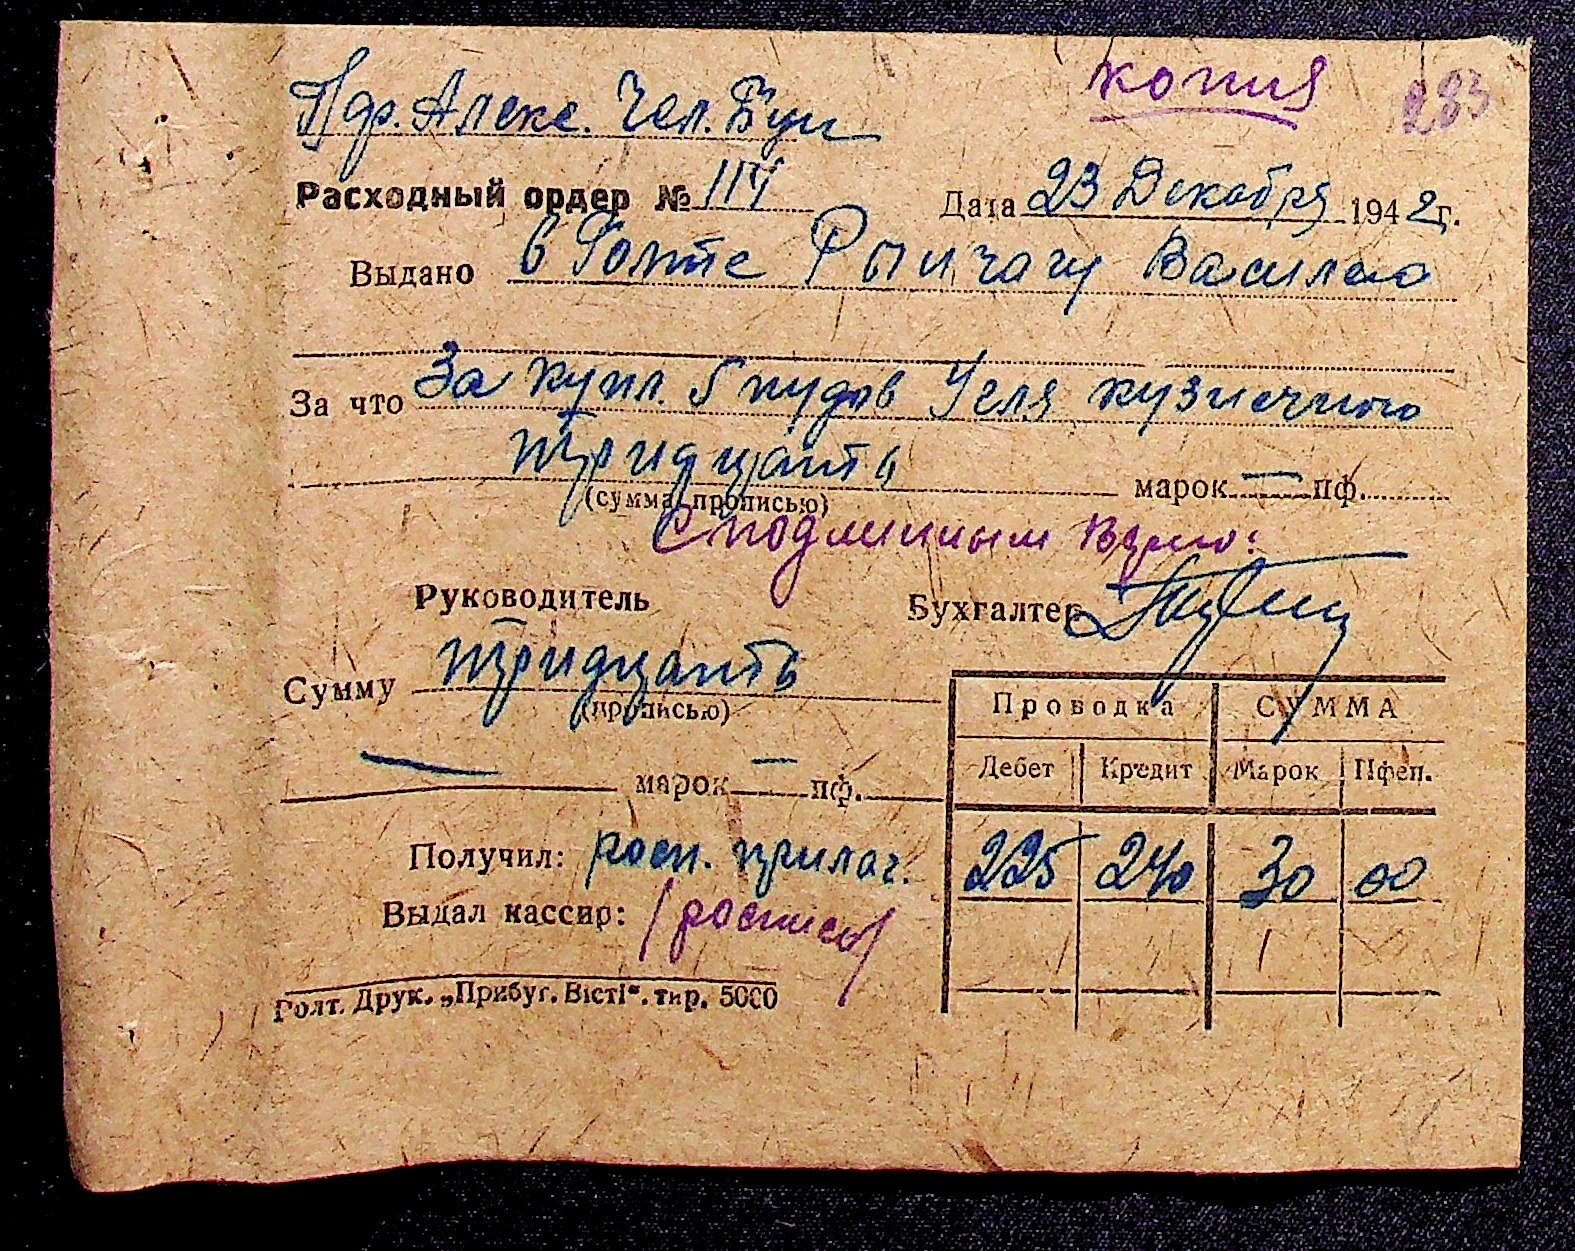 копия 283
Пдр. Алекс. Чел.
Расходный ордер № 114 Дата 23 Декабря 1942г.
Выдано в Голте Рычагу Василею
За что За купл. 5 пудов Угля кузнечного
тридцать марок — пф.
(сумма прописью)
С подлинным верно:
Руководитель Бухгалтер
Сумму тридцать
(прописью)
— марок — пф.
Проводка СУММА
Дебет Кредит Марок Пфен.
225 240 30 00
Получил: росп. прилаг.
Выдал кассир: /роспись/
Голт. Друк. „Прибуг. Вісті“. тир. 5000